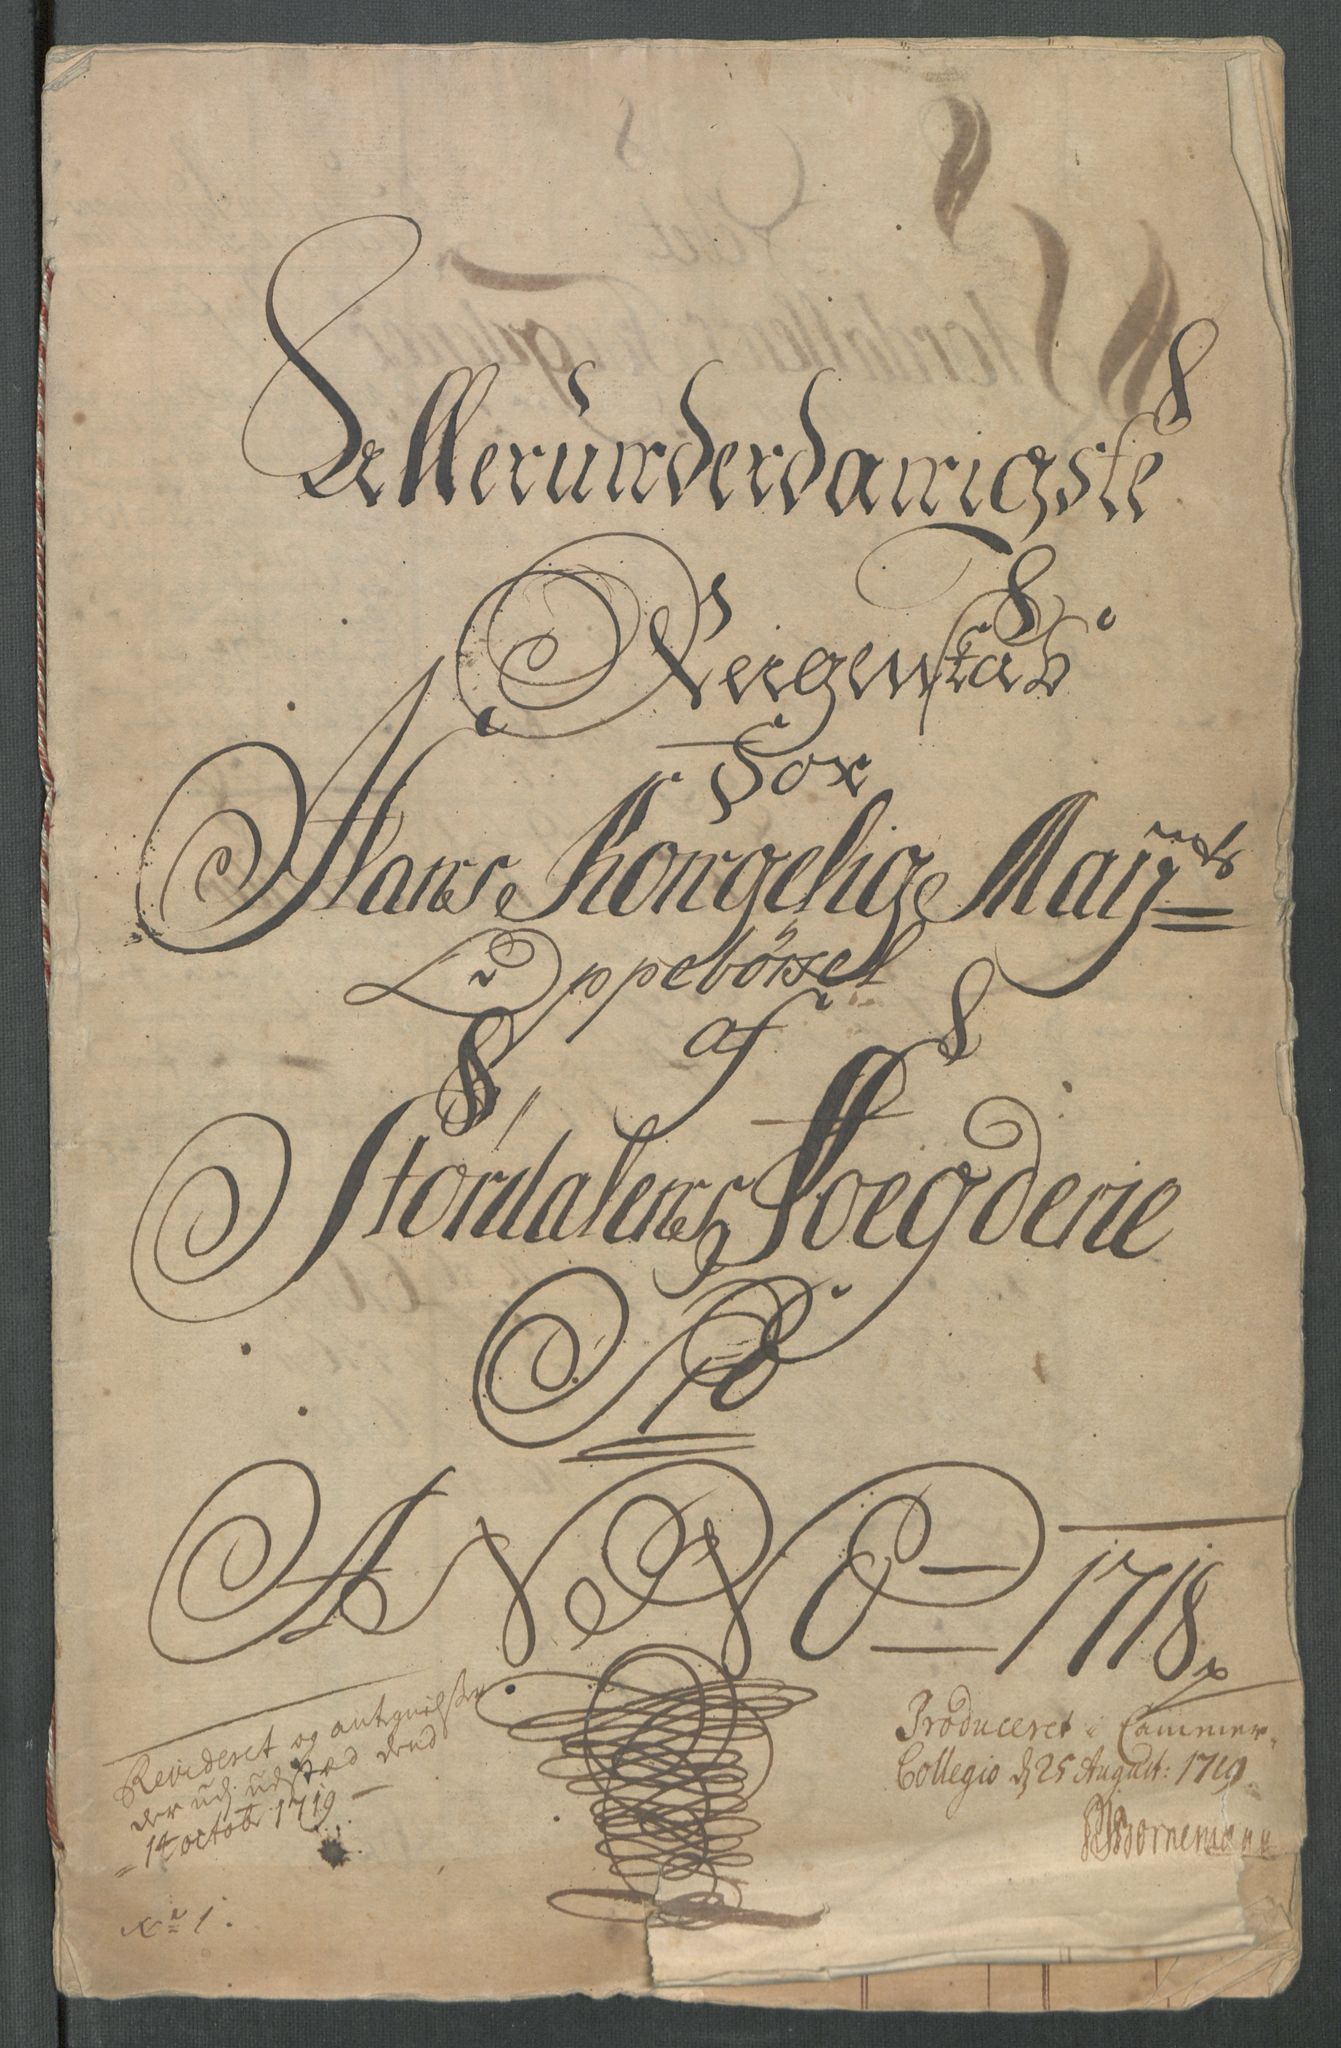 Allerunderdannigste
Reigenskab
For
Hans Kongelig Maÿ:ts
Oppebörsel
af
Stördalens Foegderie
Pro
ANNO 1718
Revideret og antegnelser
der udj udsted dend
14 octobr 1719
No 1.
Produceret i Cammer-
Collegio d 25 August: 1719
Bornemann